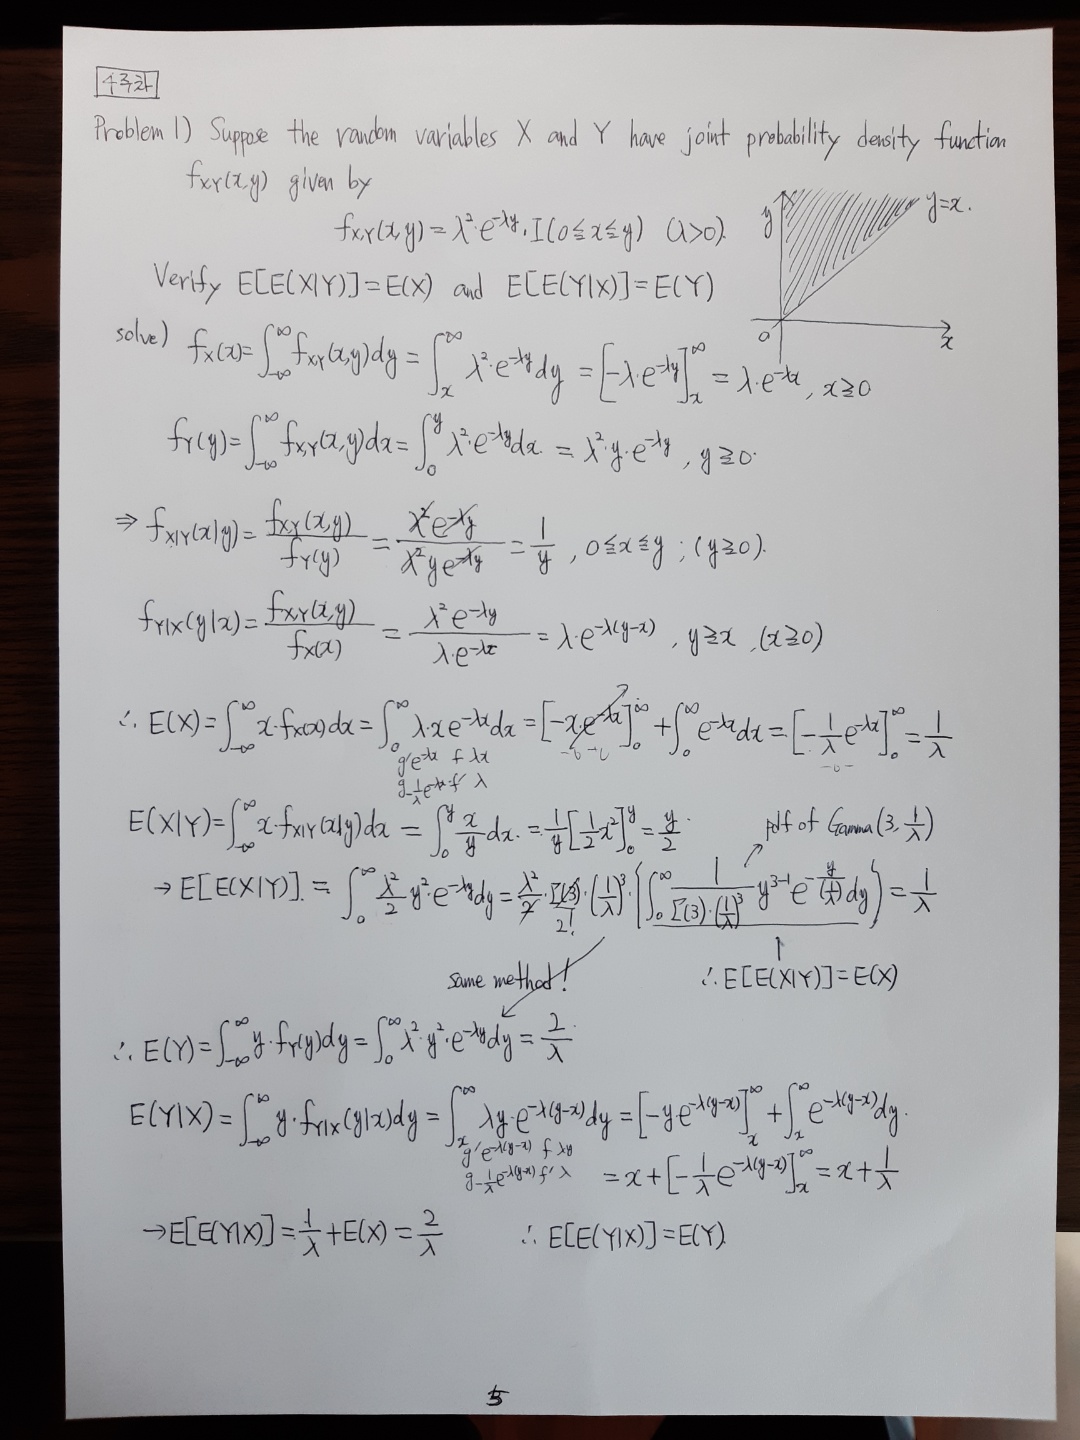 4주차
Problem 1) Suppose the random variables X and Y have joint probability density function
f_{XY}(x,y) given by
f_{X,Y}(x,y) = λ²·e^{-λy}·I(0≦x≦y) (λ>0).
y y=x.
0 x
Verify E[E(X|Y)]=E(X) and E[E(Y|X)]=E(Y)
solve) f_X(x)=∫_{-∞}^{∞} f_{XY}(x,y)dy = ∫_x^∞ λ²·e^{-λy}dy = [-λ·e^{-λy}]_x^∞ = λ·e^{-λx}, x≧0
f_Y(y)=∫_{-∞}^{∞} f_{X,Y}(x,y)dx=∫_0^y λ²·e^{-λy}dx = λ²·y·e^{-λy}, y≧0.
⇒ f_{X|Y}(x|y)= f_{X,Y}(x,y)/f_Y(y) = λ²e^{-λy}/λ²ye^{-λy} = 1/y, 0≦x≦y ; (y≧0).
f_{Y|X}(y|x)= f_{X,Y}(x,y)/f_X(x) = λ²e^{-λy}/λ·e^{-λx} = λ·e^{-λ(y-x)}, y≧x, (x≧0)
∴ E(X)=∫_{-∞}^{∞} x·f_X(x)dx=∫_0^∞ λ·xe^{-λx}dx=[-x·e^{-λx}]_0^∞ +∫_0^∞ e^{-λx}dx=[-1/λ e^{-λx}]_0^∞=1/λ
g' e^{-λx} f λx
g -1/λ e^{-λx} f' λ
E(X|Y)=∫_{-∞}^{∞} x·f_{X|Y}(x|y)dx = ∫_0^y x/y dx. = 1/y[1/2 x²]_0^y = y/2. pdf of Gamma(3, 1/λ)
→ E[E(X|Y)]. = ∫_0^∞ λ²/2 y²·e^{-λy}dy = λ²/2·Γ(3)·(1/λ)³·{∫_0^∞ 1/(Γ(3)·(1/λ)³) y^{3-1}e^{-y/(1/λ)}dy} = 1/λ
2!
same method! ∴E[E(X|Y)]=E(X)
∴ E(Y)=∫_{-∞}^{∞} y·f_Y(y)dy=∫_0^∞ λ²·y²·e^{-λy}dy = 2/λ.
E(Y|X)=∫_{-∞}^{∞} y·f_{Y|X}(y|x)dy = ∫_x^∞ λy·e^{-λ(y-x)}dy = [-ye^{-λ(y-x)}]_x^∞ +∫_x^∞ e^{-λ(y-x)}dy.
g' e^{-λ(y-x)} f λy
g -1/λ e^{-λ(y-x)} f' λ = x+[-1/λ e^{-λ(y-x)}]_x^∞ = x+1/λ
→E[E(Y|X)] = 1/λ+E(X) = 2/λ ∴ E[E(Y|X)]=E(Y).